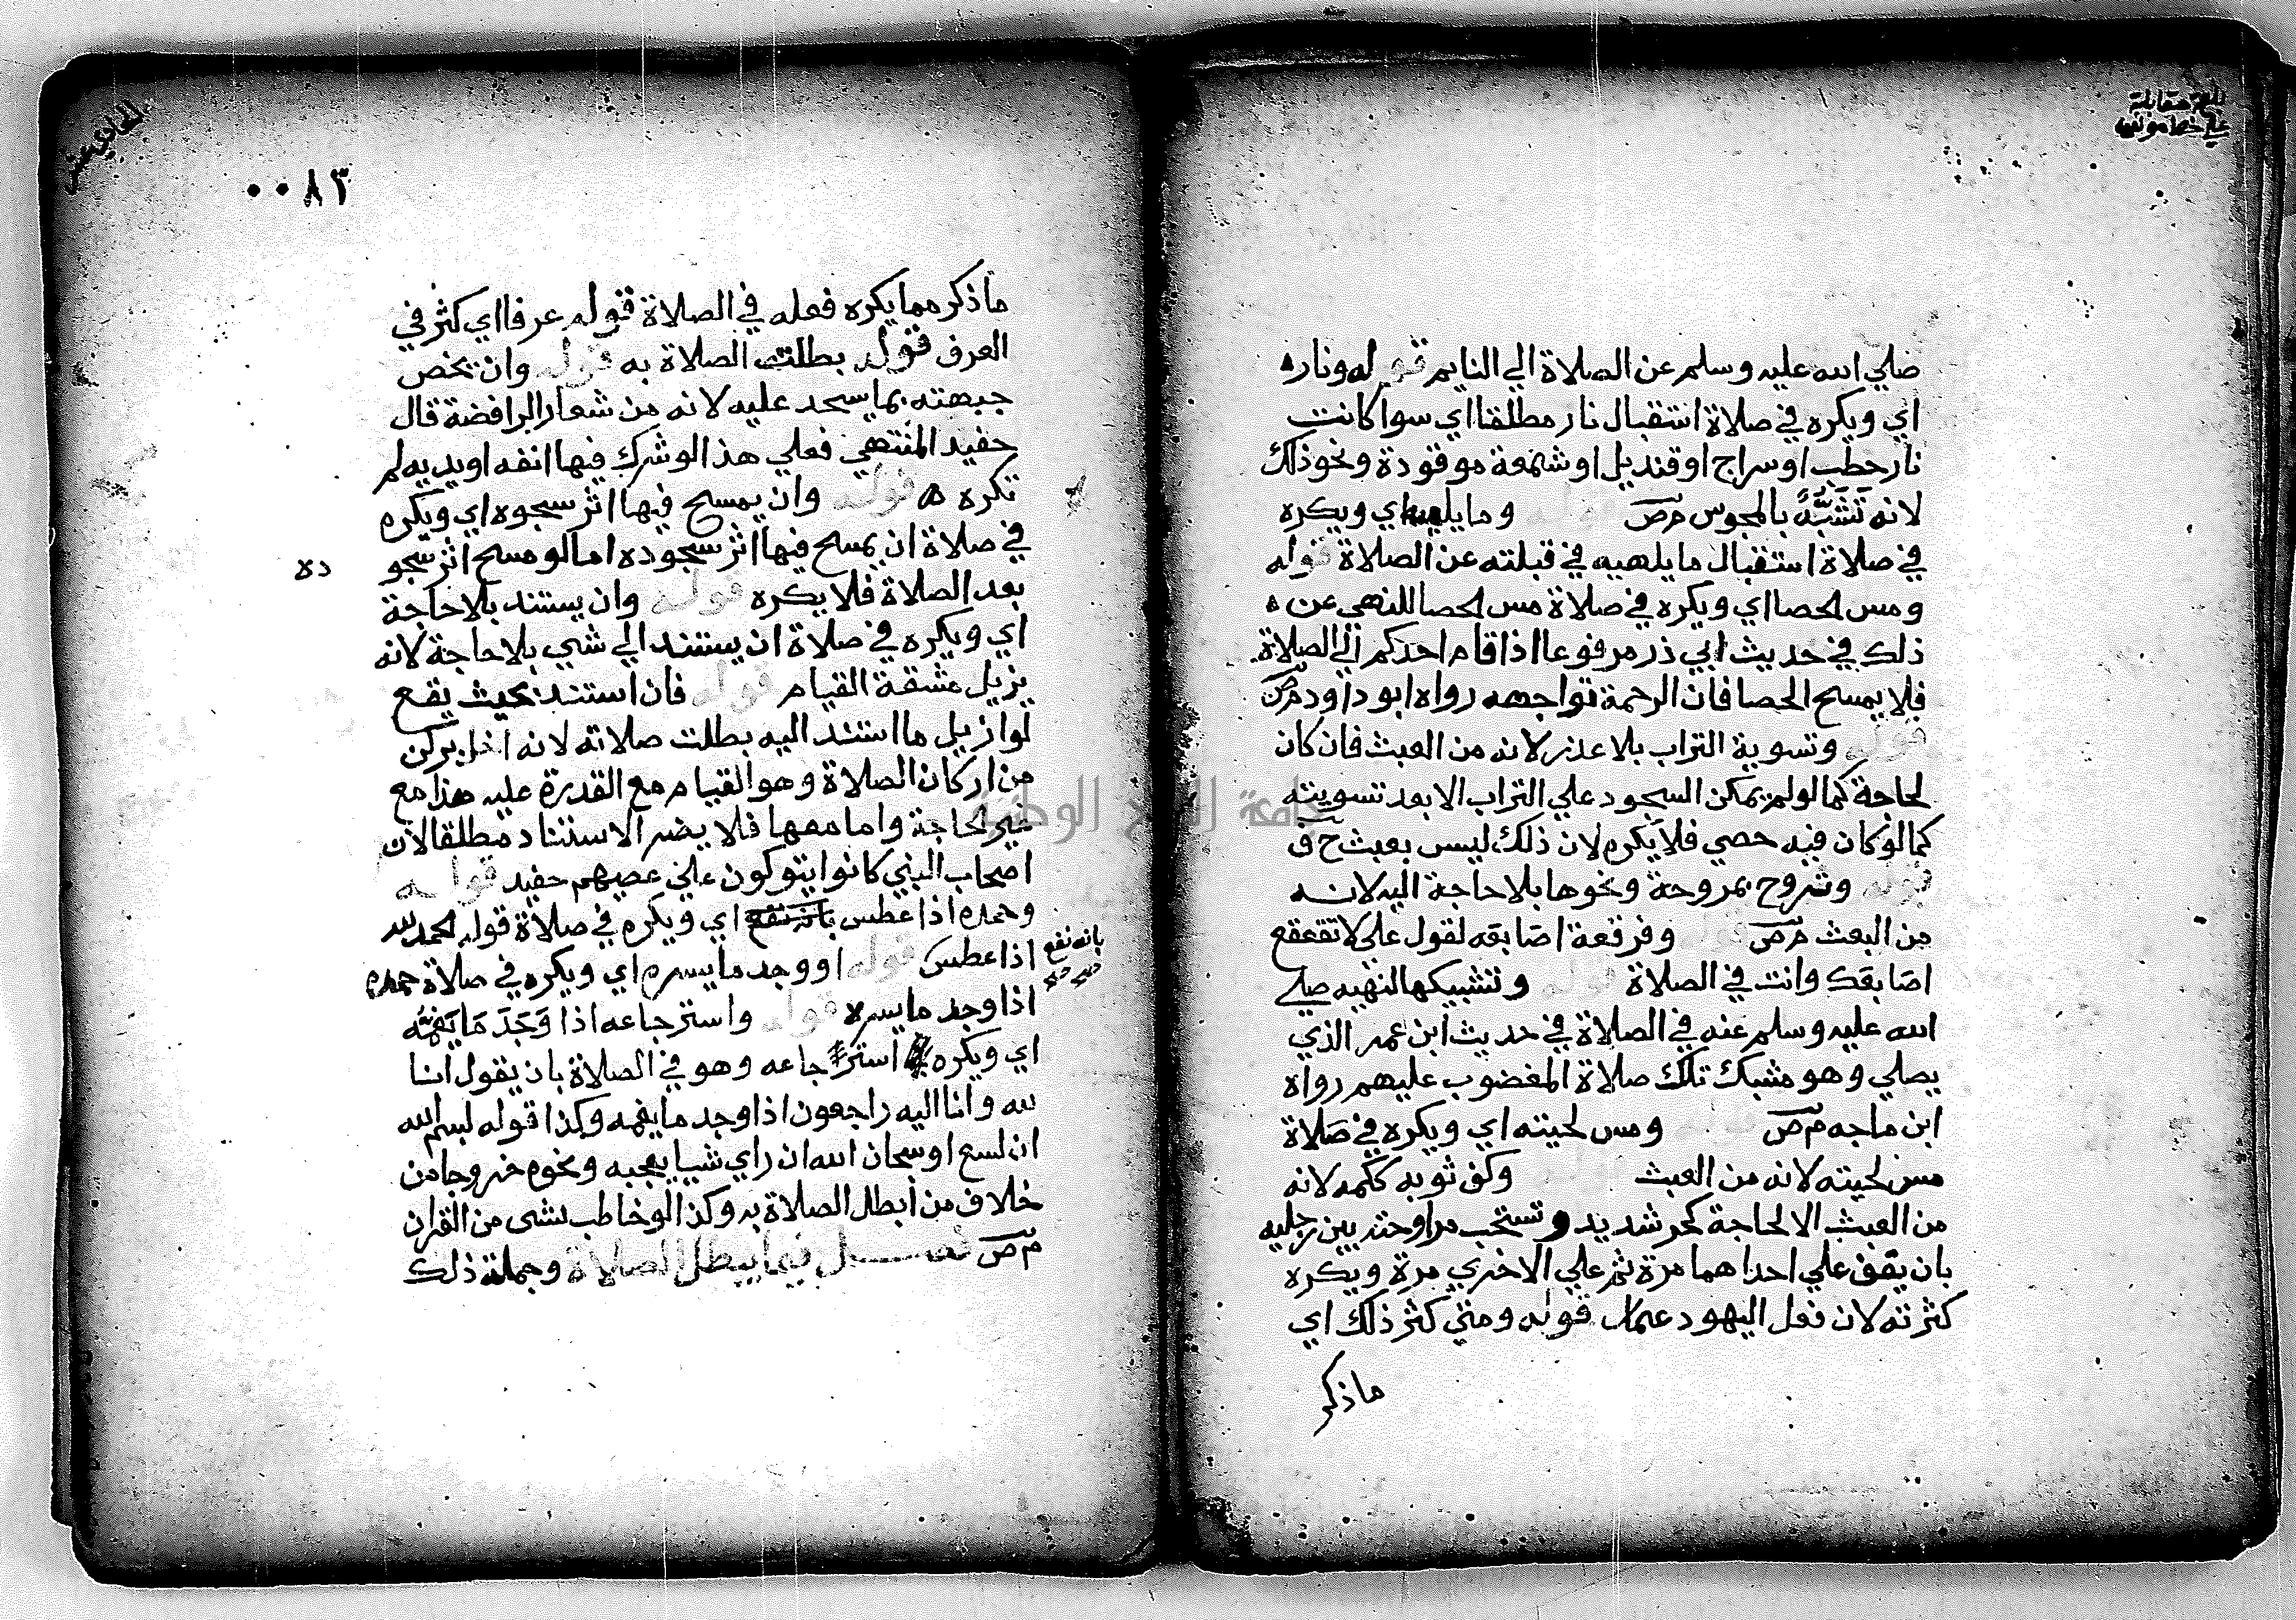 بلغ مقابلة
علي خط مولفه
صلي الله عليه وسلم عن الصلاة الي النايم قوله ونار
اي ويكره في صلاة استقبال نار مطلقا اي سوا كانت
نار حطب او سراج او قنديل او شمعة موقودة ونحو ذلك
لانه تَشَبُّهٌ بالمجوس م ص قوله وما يلهيه اي ويكره
في صلاة استقبال ما يلهيه في قبلته عن الصلاة قوله
ومس الحصا اي ويكره في صلاة مس الحصا للنهي عن
ذلك في حديث ابي ذر مرفوعا اذا قام احدكم الي الصلاة
فلا يمسح الحصا فان الرحمة تواجهه رواه ابو داود م ص
قوله وتسوية التراب بلا عذر لانه من العبث فان كان
لحاجة كما لو لم يمكن السجود علي التراب الا بعد تسويته
كما لو كان فيه حصي فلا يكره لان ذلك ليس بعبث ح ف
قوله وتروح بمروحة ونحوها بلا حاجة اليه لانه
من العبث م ص قوله وفرقعة اصابعه لقول علي لا تقعقع
اصابعك وانت في الصلاة قوله وتشبيكها لنهيه صلي
الله عليه وسلم عنه في الصلاة في حديث ابن عمر الذي
يصلي وهو مشبك تلك صلاة المغضوب عليهم رواه
ابن ماجه م ص قوله ومس لحيته اي ويكره في صلاة
مس لحيته لانه من العبث قوله وكف ثوبه ككمه لانه
من العبث الا لحاجة كحر شديد وتستحب مراوحته بين رجليه
بان يقف علي احداهما مرة ثم علي الاخري مرة ويكره
كثرته لان فعل اليهود قوله ومتي كثر ذلك اي
ما ذكر
٠٠٨٣
ما ذكر مما يكره فعله في الصلاة قوله عرفا اي كثر في
العرف قوله بطلت الصلاة به قوله وان يخص
جبهته بما يسجد عليه لانه من شعار الرافضة قال
حفيد المنتهي فعلي هذا لو شرك فيها انفه او يديه لم
تكره ه قوله وان يمسح فيها اثر سجوه اي ويكره
في صلاة ان يمسح فيها اثر سجوده اما لو مسح اثر سجو
ده
بعد الصلاة فلا يكره قوله وان يستند بلا حاجة
اي ويكره في صلاة ان يستند الي شي بلا حاجة لانه
يزيل مشقة القيام قوله فان استند بحيث يقع
لو ازيل ما استند اليه بطلت صلاته لانه اخل بركن
من اركان الصلاة وهو القيام مع القدرة عليه هذا مع
غير لحاجة واما معها فلا يضر الاستناد مطلقا لان
اصحاب النبي كانوا يتوكون علي عصيهم حفيد قوله
وحمده اذا عطس اي ويكره في صلاة قوله الحمد لله
اذا عطس قوله او وجد ما يسره اي ويكره في صلاة حمده
اذا وجد ما يسره قوله واسترجاعه اذا وَجَدَ مَا يَغُمُّه
اي ويكره استرجاعه وهو في الصلاة بان يقول انا
لله وانا اليه راجعون اذا وجد ما يغمه وكذا قوله بسم الله
ان لسع او سبحان الله ان راي شيا يعجبه ونحوه خروجا من
خلاف من ابطل الصلاة به وكذا لو خاطب بشي من القران
م ص فصل فيما يبطل الصلاة وجملة ذلك
جامعة النجاح الوطنية